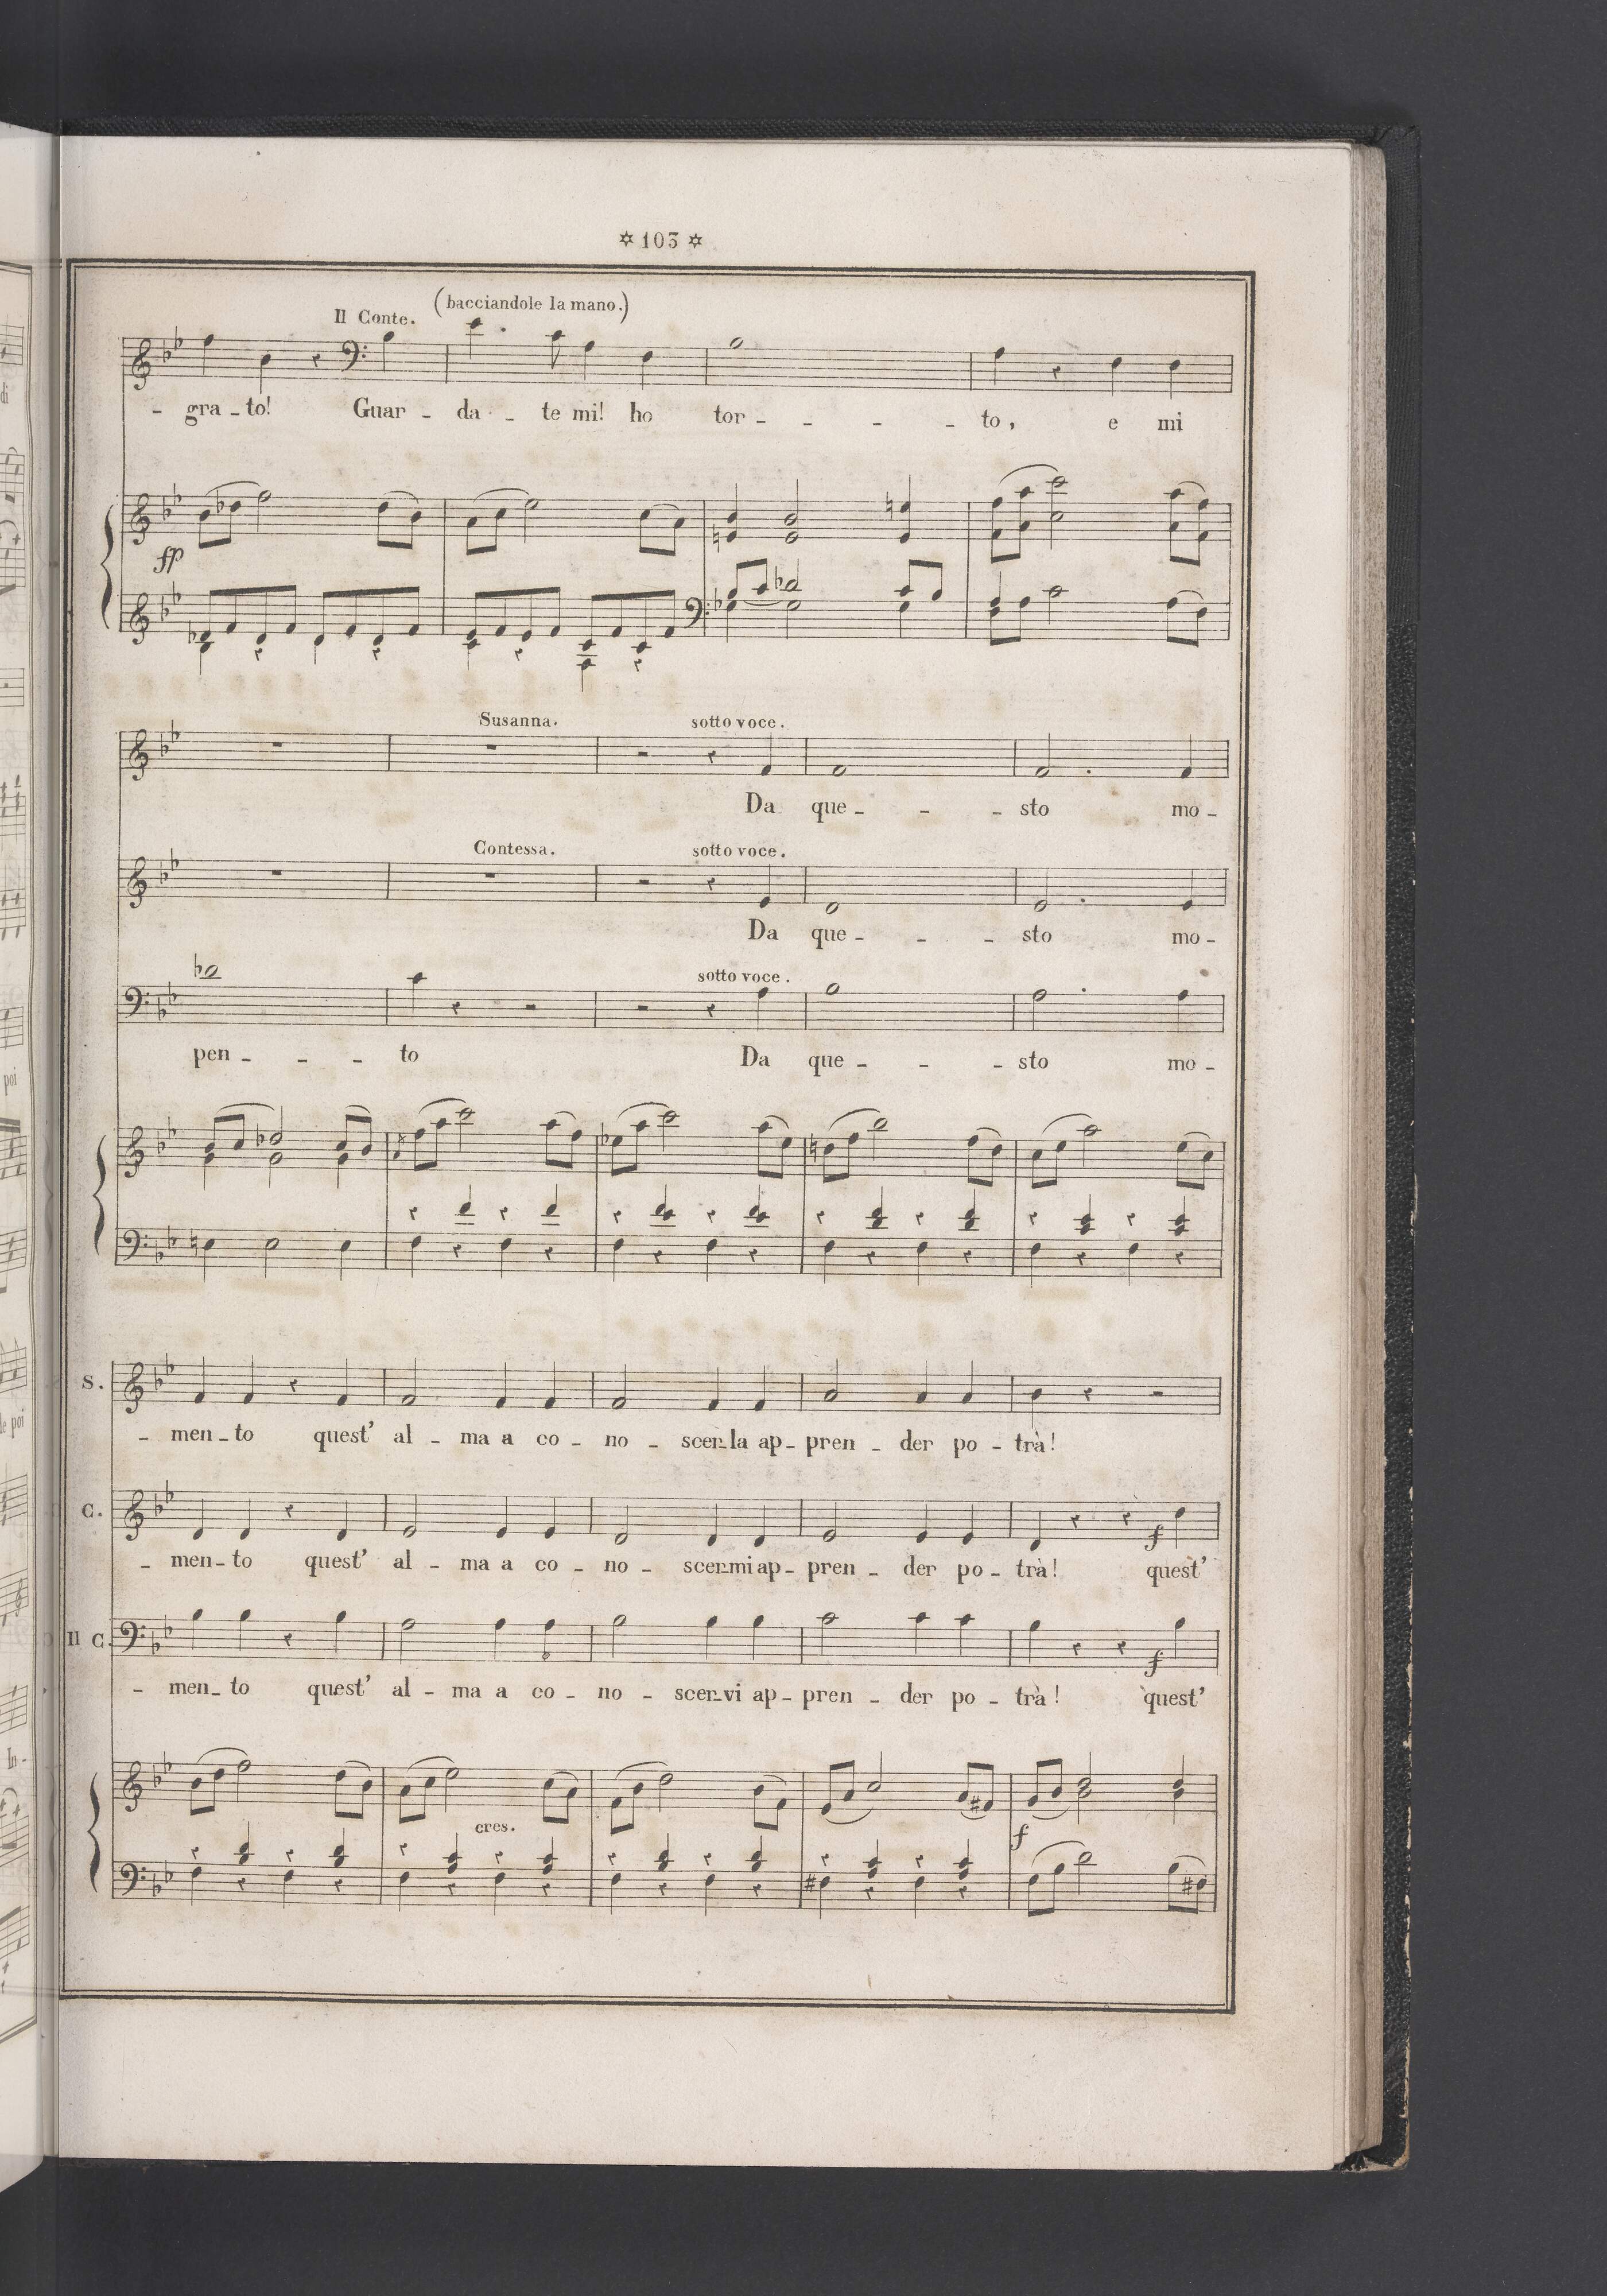 ✡ 103 ✡
(bacciandole la mano.)
Il Conte.
- gra - to! Guar - da - te mi! ho tor - - - - to, e mi
fp
Susanna. sotto voce.
Da que - - - sto mo -
Contessa. sotto voce.
Da que - - - sto mo -
sotto voce.
pen - - - to Da que - - - sto mo -
S.
- men - to quest' al - ma a co - no - scer - la ap - pren - der po - trà!
C.
f
- men - to quest' al - ma a co - no - scer - mi ap - pren - der po - trà! quest'
Il C.
f
- men - to quest' al - ma a co - no - scer - vi ap - pren - der po - trà! quest'
cres.
f
di
poi
le poi
In -